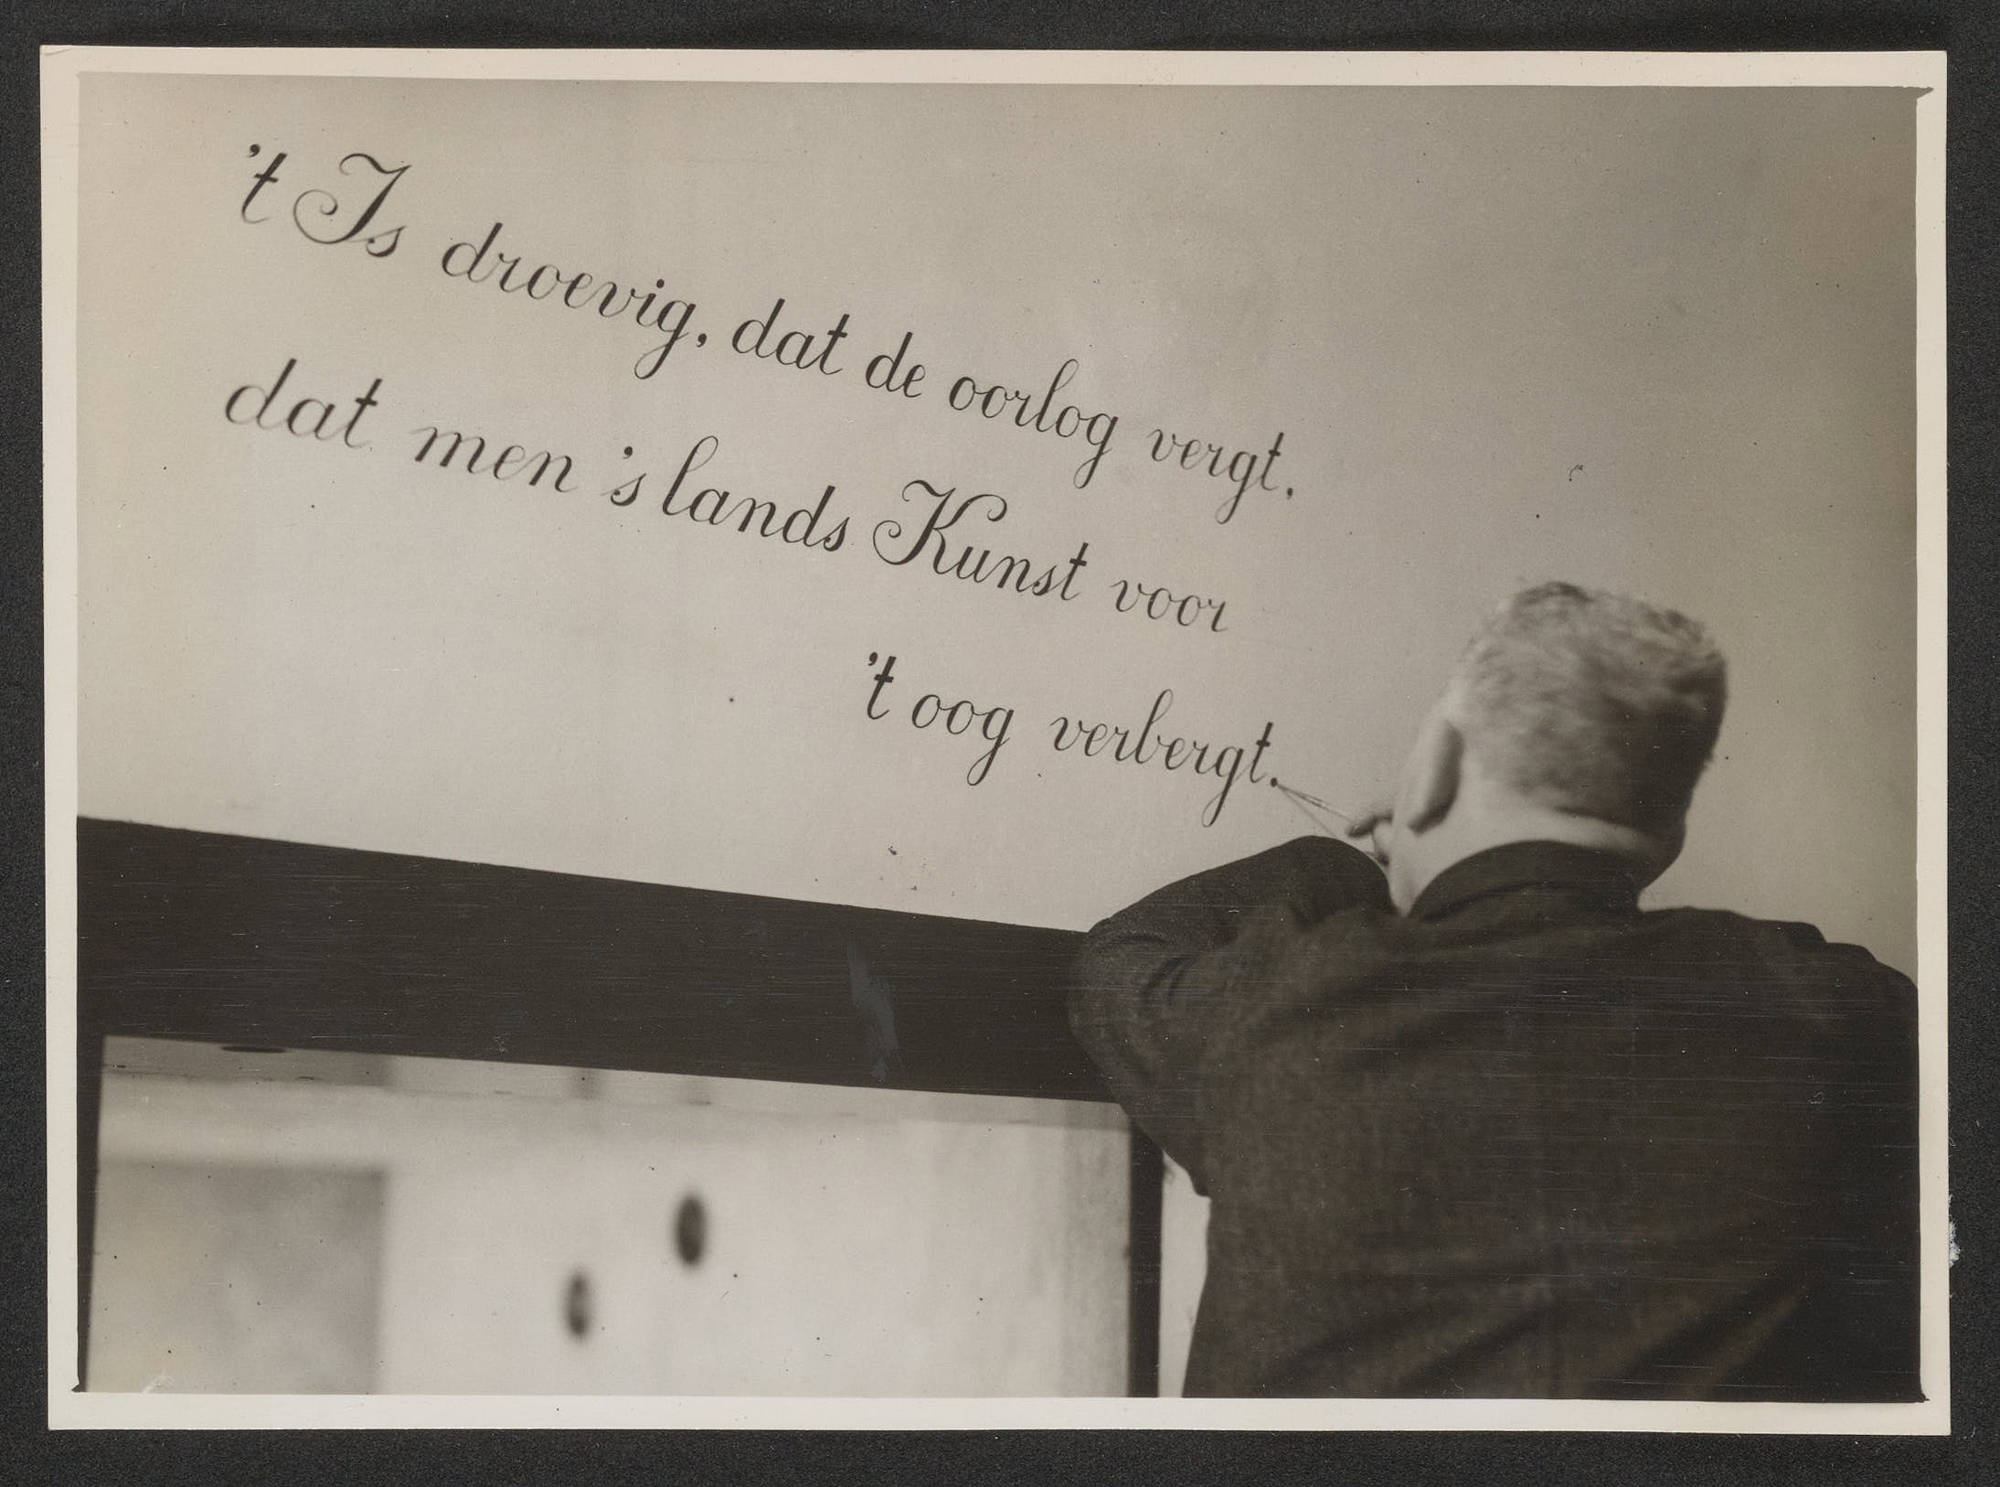 't Is droevig, dat de oorlog vergt.
dat men 's lands Kunst voor
't oog verbergt.